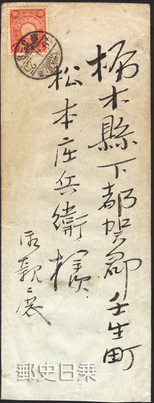 栃木縣下都賀郡壬生町
松本庄兵衛様
御親展
郵史日乗